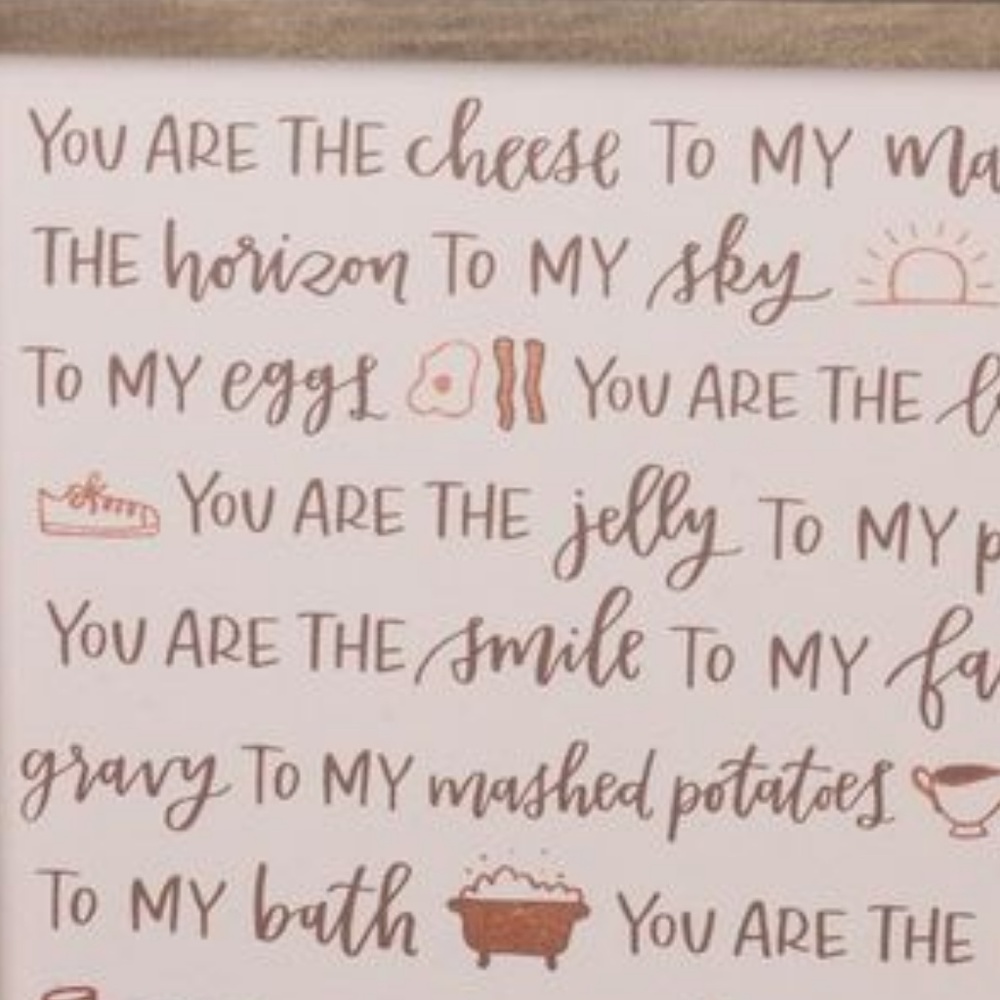 YOU ARE THE cheese TO MY
THE horizon TO MY sky
TO MY eggs YOU ARE THE
YOU ARE THE jelly TO MY
YOU ARE THE smile TO MY
gravy TO MY mashed potatoes
TO MY bath YOU ARE THE